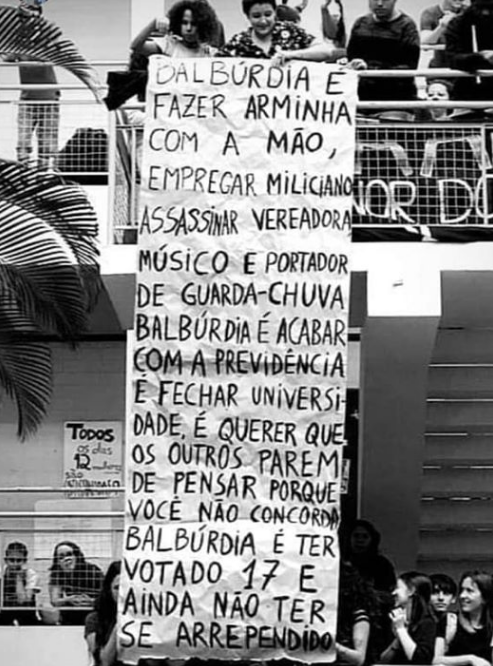 BALBÚRDIA É
FAZER ARMINHA
COM A MÃO,
EMPREGAR MILICIANO
ASSASSINAR VEREADORA
MÚSICO E PORTADOR
DE GUARDA-CHUVA
BALBÚRDIA É ACABAR
COM A PREVIDÊNCIA
É FECHAR UNIVERSI-
DADE, É QUERER QUE
OS OUTROS PAREM
DE PENSAR PORQUE
VOCÊ NÃO CONCORDA
BALBÚRDIA É TER
VOTADO 17 E
AINDA NÃO TER
SE ARREPENDIDO
NOR DO
TODOS
os das
12
são